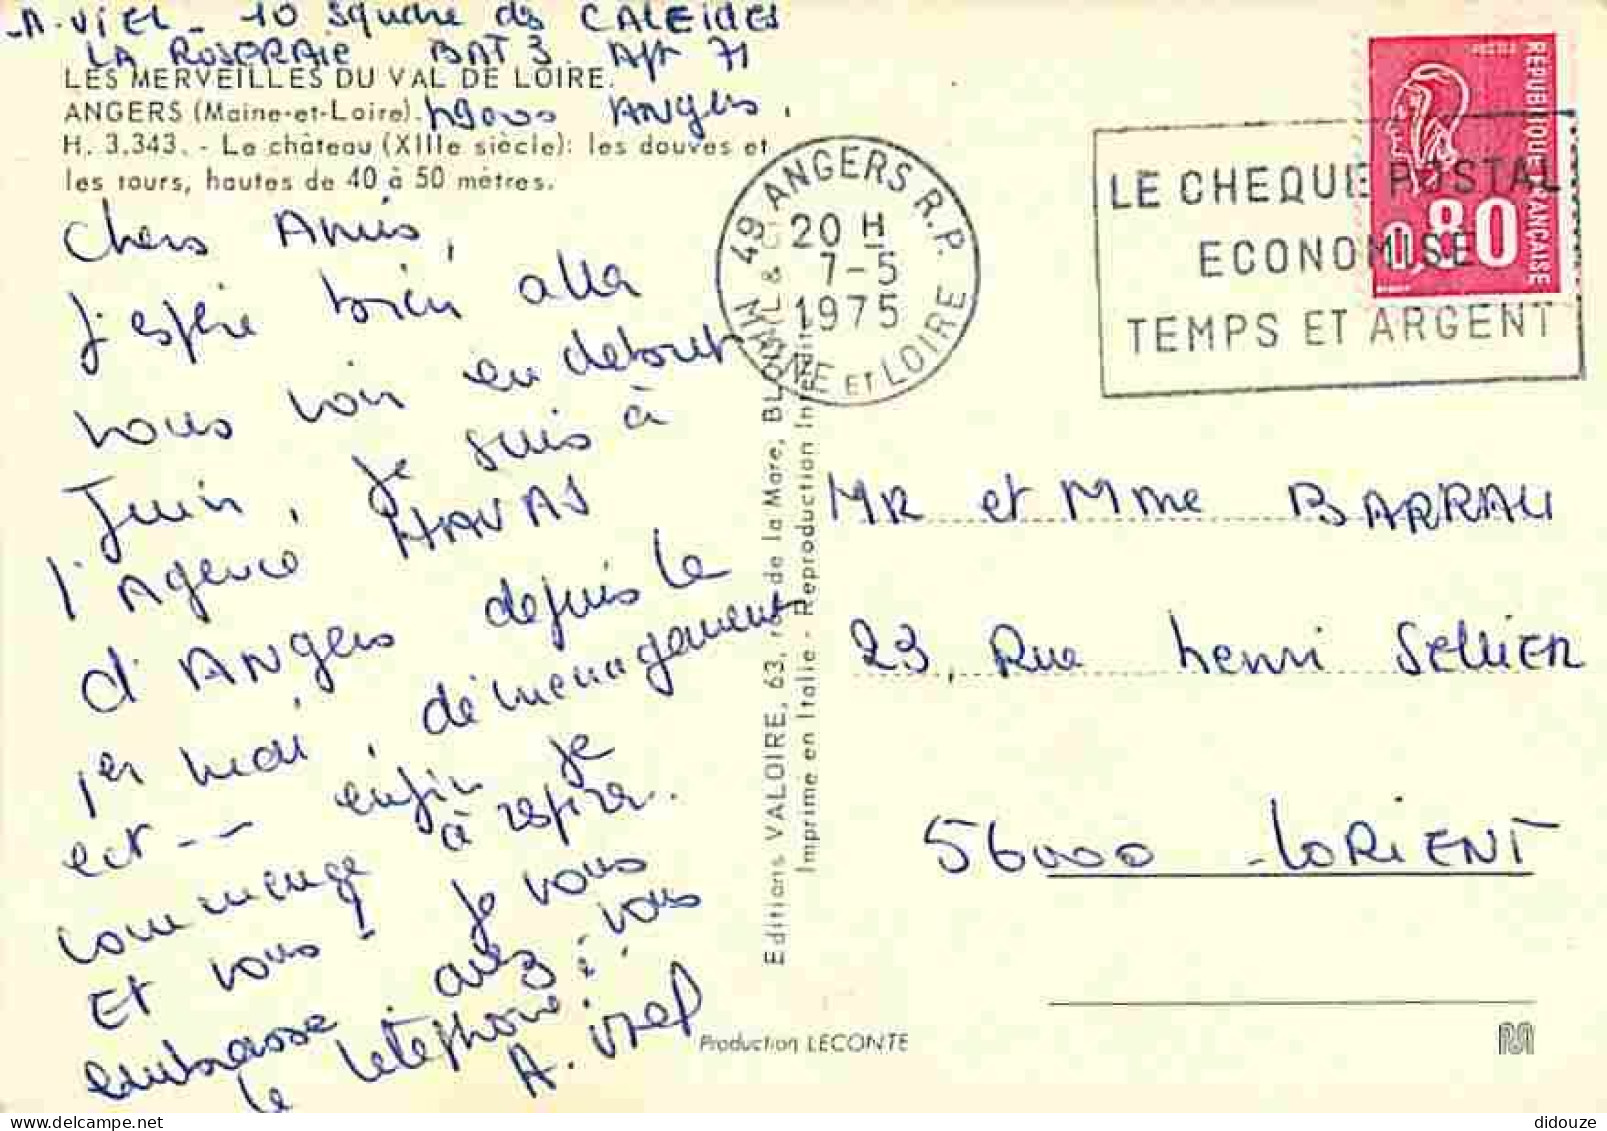 A. VIEL - 10 Square des CALEIDES
LA ROSERAIE BAT 3 Apt 71
49000 ANGERS.
LES MERVEILLES DU VAL DE LOIRE.
ANGERS (Maine-et-Loire).
H. 3.343. - Le château (XIIIe siècle): les douves et
les tours, hautes de 40 à 50 mètres.
Chers Amis,
J'espère bien alla
vous voir en debout
Juin, je suis à
l'Agence HAVAS
d'ANgers depuis le
1er Medi, déménagement
ect -- enfin je
commence à respirer.
Et vous? Je vous
embrasse. avez vous
le téléphone?
A. Viel
49 ANGERS R.P.
20 H
7-5
1975
MAINE ET LOIRE
LE CHEQUE POSTAL
ECONOMISE
TEMPS ET ARGENT
REPUBLIQUE FRANÇAISE
0,80
Editions VALOIRE, 63, r. de la Mare, BLOIS (L. & C.)
Imprimé en Italie - Reproduction Interdite
MR et Mme BARRAU
23, Rue henri SeLLiER
56000 LORIENT
Production LECONTE
didouze